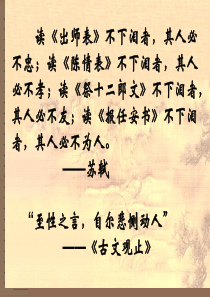 读《出师表》不下泪者，其人必
不忠；读《陈情表》不下泪者，其人
必不孝；读《祭十二郎文》不下泪者，
其人必不友；读《报任安书》不下泪
者，其人必不为人。
——苏轼
“至性之言，自尔悲恻动人”
——《古文观止》